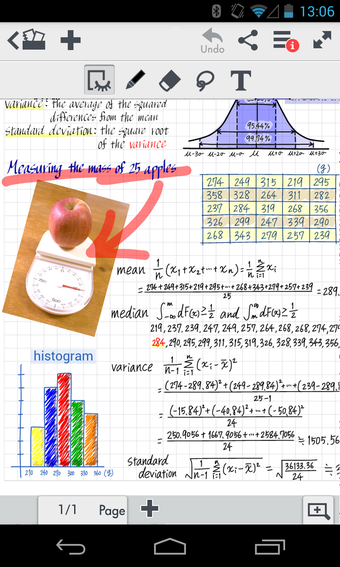 13:06
Undo
1
T
variance: the average of the squared
differences from the mean
standard deviation: the square root
of the variance
95.44%
99.74%
μ-3σ μ-2σ μ-σ μ μ+σ μ+2σ μ+3σ
Measuring the mass of 25 apples
(g)
274 249 315 219 295
358 328 264 311 282
237 284 319 268 356
326 299 247 339 290
268 343 279 257 239
mean 1/n (x₁+x₂+⋯+xₙ)=1/n Σ xᵢ
= 274+249+315+219+295+⋯+268+343+279+257+239 / 25 =289.
median ∫ dF(x)≥1/2 and ∫ dF(x)≥1/2
219, 237, 239, 247, 249, 257, 264, 268, 268, 274, 27
284, 290, 295, 299, 311, 315, 319, 326, 328, 339, 343, 356,
histogram
variance 1/n-1 Σ (xᵢ-x̄)²
= (274-289.84)²+(249-289.84)²+⋯+(239-289.8 / 25-1
= (-15.84)²+(-40.84)²+⋯+(-50.84)² / 24
= 250.9056+1667.9056+⋯+2584.7056 / 24 ≒1505.56
standard
deviation √1/n-1 Σ (xᵢ-x̄)² = √36133.36/24 ≒3
210 240 270 300 330 360 (g)
1/1 Page